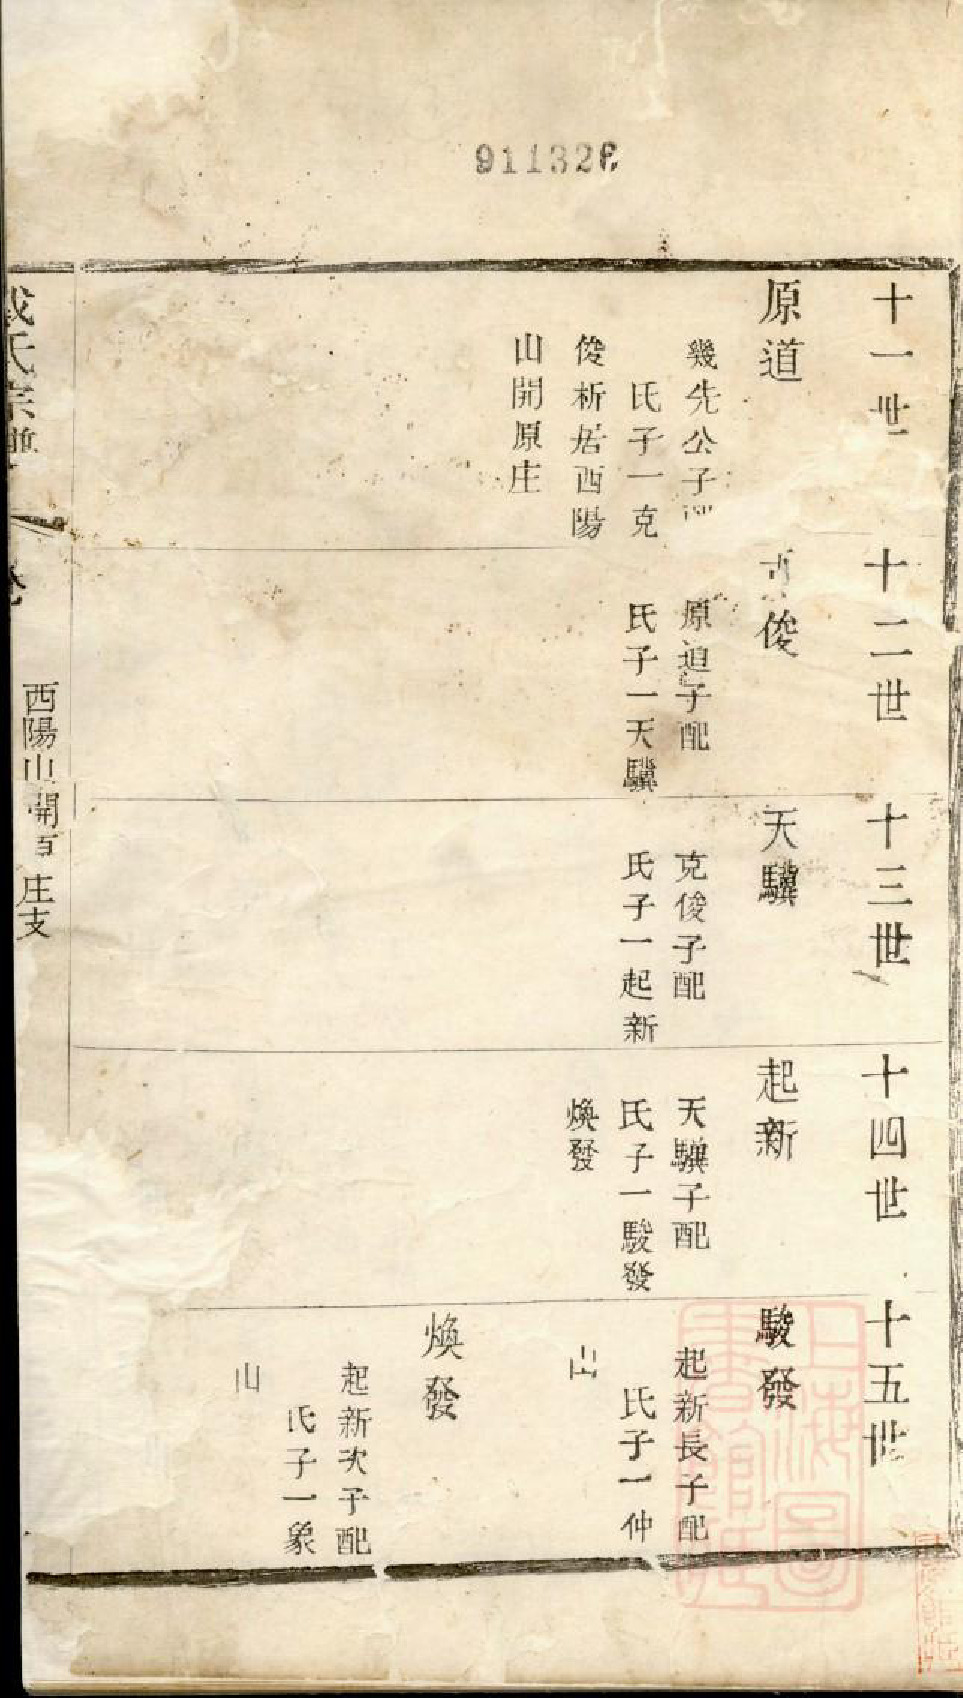 911326
十一世
原道
幾先公子配
氏子一克
俊析居西陽
山開原庄
十二世
俊
原道子配
氏子一天驥
十三世
天驥
克俊子配
氏子一起新
十四世
起新
天驥子配
氏子一駿發
煥發
十五世
駿發
起新長子配
氏子一仲
山
煥發
起新次子配
氏子一象
山
氏宗譜
西陽山開百庄支
上海圖書館藏